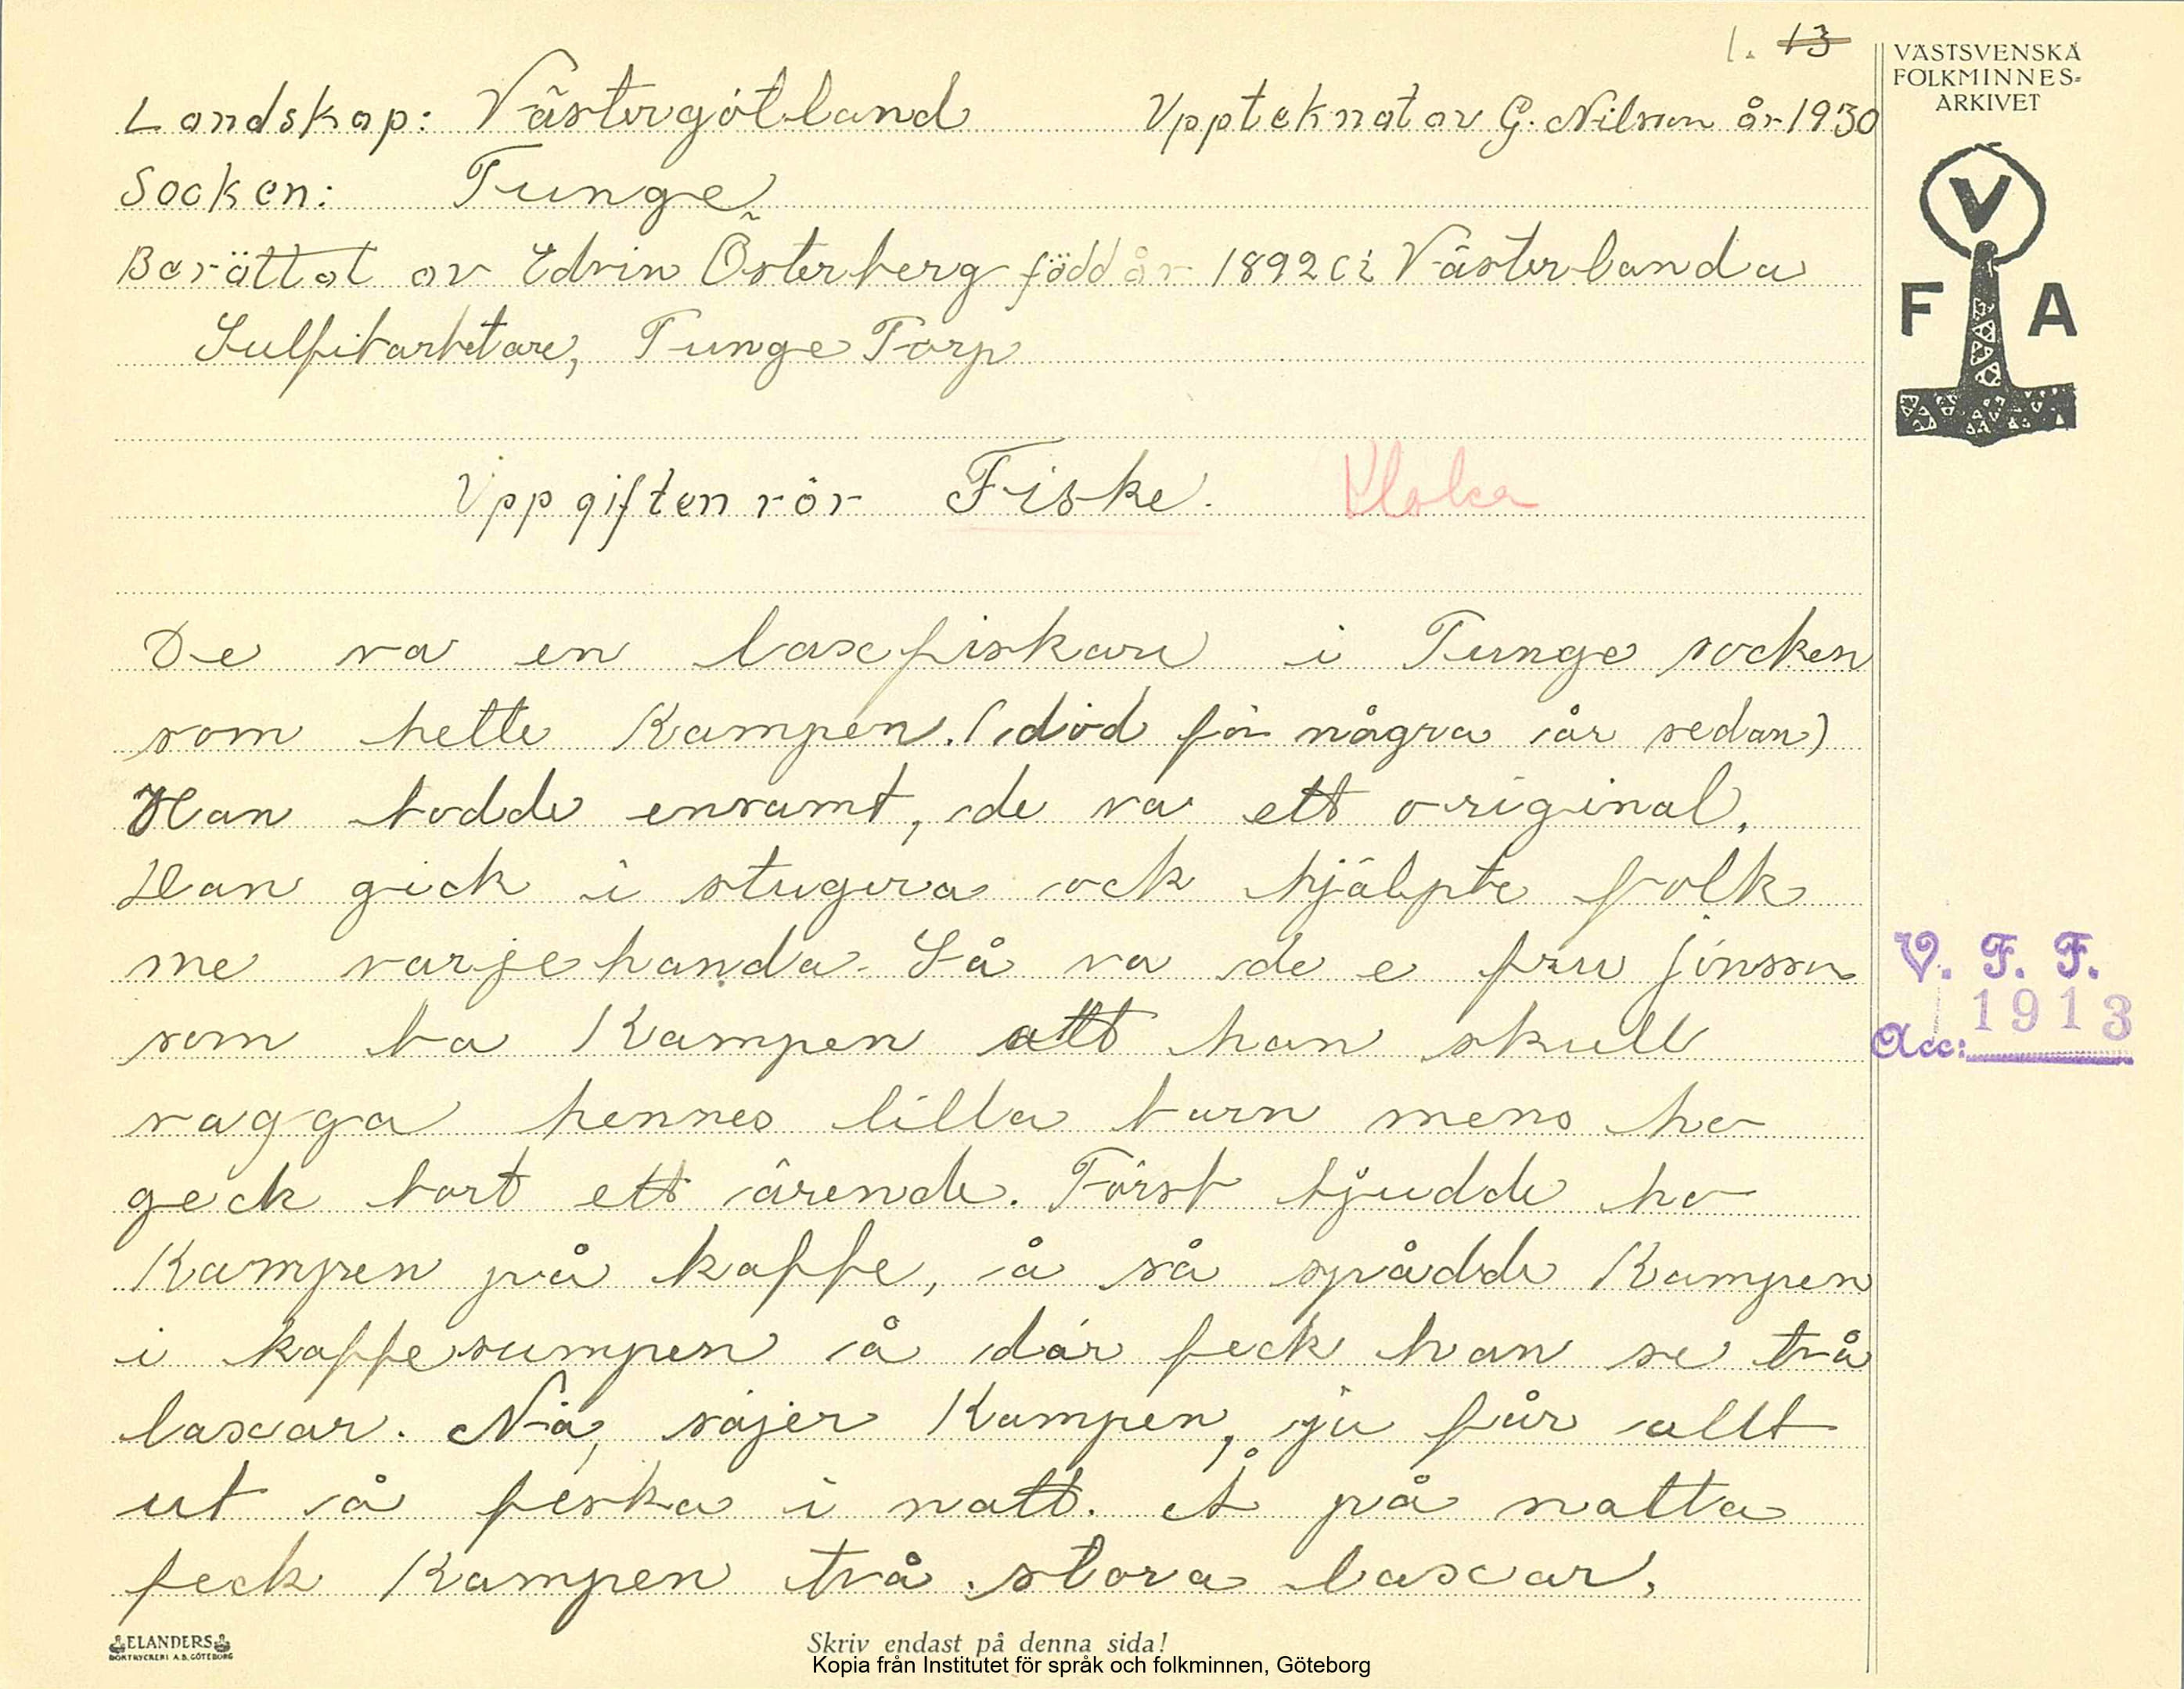 1. 13
VÄSTSVENSKA
FOLKMINNES-
ARKIVET
Landskap: Västergötland Upptecknat av G. Nilson år 1930
Socken: Tunge
Berättat av Edvin Österberg född år 1892 i Västerlanda
Sulfitarbetare, Tunge Torp
V
F A
Uppgiften rör Fiske.
De va en laxfiskare i Tunge socken
som hette Kampen. (död för några år sedan)
Han bodde ensamt, de va ett original.
Han gick i stugera ock hjälpte folk
me varjehanda. Så va de e fru Jonsson
som ba Kampen att han skull
vagga hennes lilla barn mens ho
geck bort ett ärende. Först bjudde ho
Kampen på kaffe, å så spådde Kampen
i kaffesumpen å där feck han se två
laxar. Nå, säjer Kampen, ju får allt
ut å feska i natt. Å på natta
feck Kampen två stora laxar.
V. F. F.
Acc: 1913
ELANDERS
BOKTRYCKERI A.B. GÖTEBORG
Skriv endast på denna sida!
Kopia från Institutet för språk och folkminnen, Göteborg